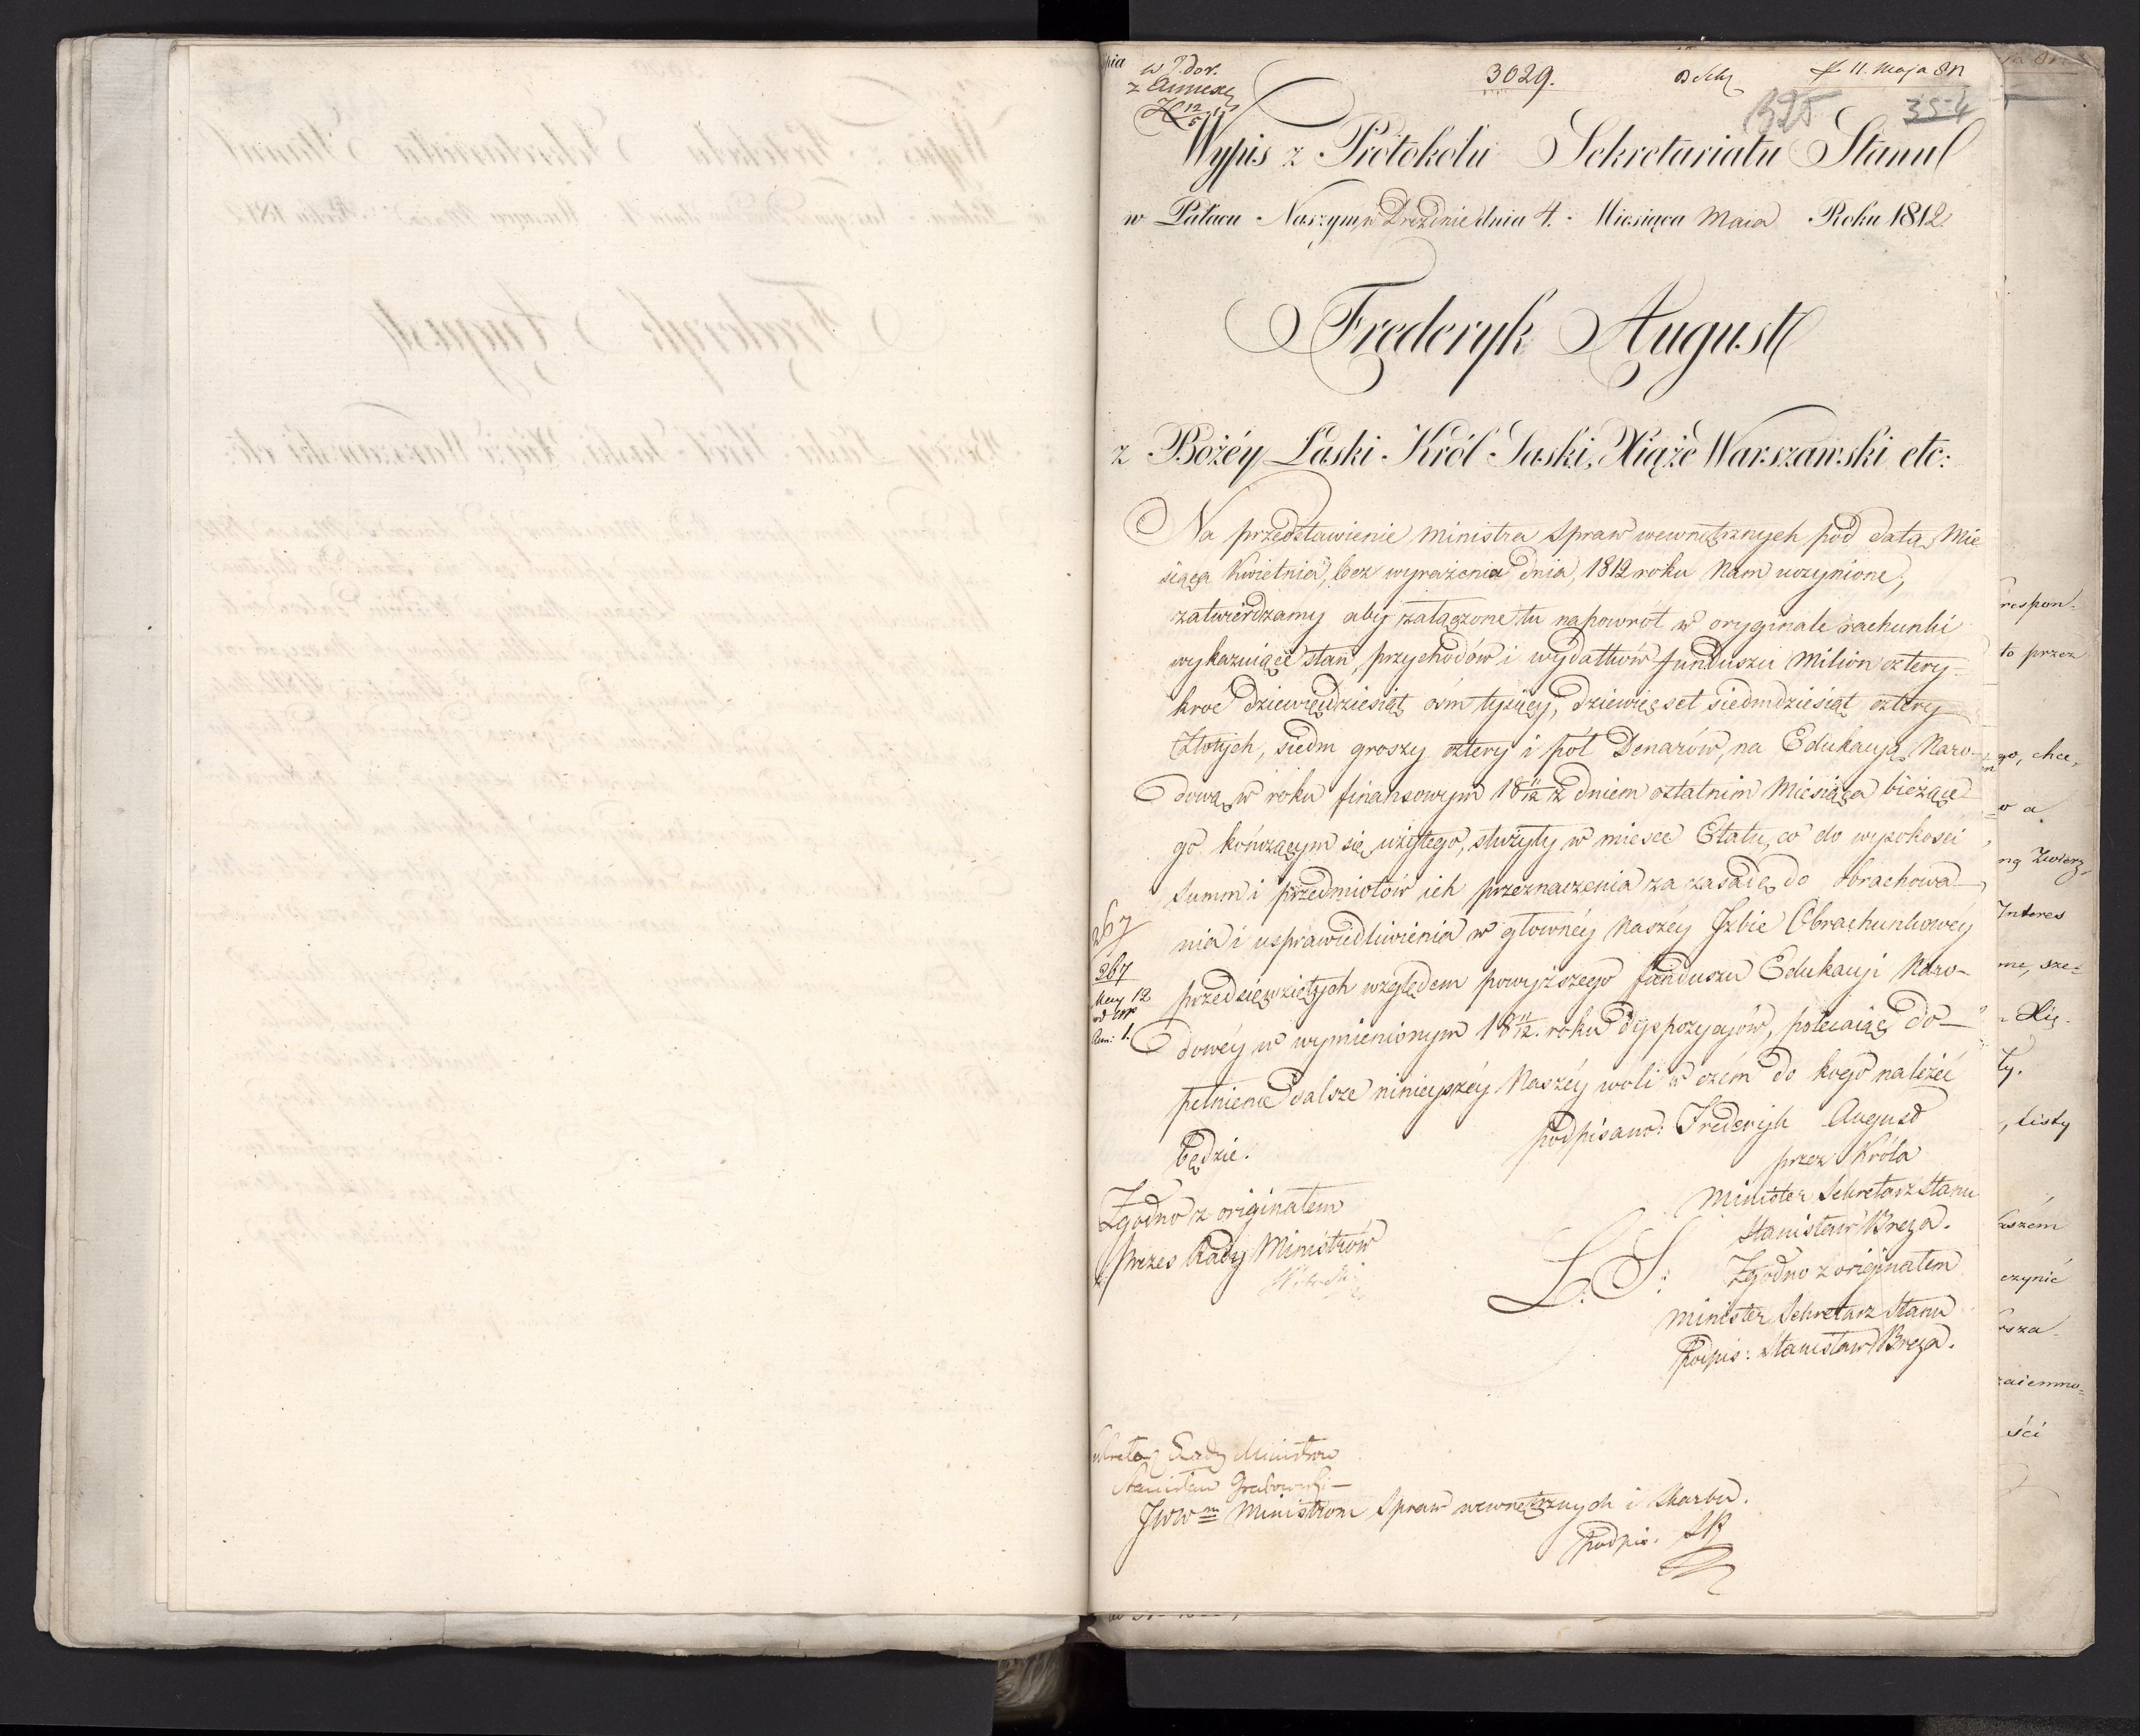 3029.
11. Maja 812
354
Wypis z Protokołu Sekretariatu Stanu
w Pałacu Naszym w Dreznie dnia 4. Miesiąca Maia Roku 1812.
Frederyk August
z Bożéy Łaski Król Saski, Xiąże Warszawski etc:
Na przedstawienie Ministra Spraw wewnętrznych pod datą Mie
siąca Kwietnia, bez wyrażenia dnia, 1812 roku Nam uczynione,
zatwierdzamy aby załączone tu napowrót w oryginale rachunki
wykazuiące stan przychodów i wydatków funduszu Milion cztery-
kroć dziewięćdziesiąt ośm tysięcy, dziewięćset siedmdziesiąt cztery
Złotych, siedm groszy cztery i pół Denarów, na Edukacyą Naro-
dową w roku finansowym 18 11/12 z dniem ostatnim Miesiąca bieżące-
go kończącym się użytego, służyły w miesce Etatu, co do wysokości
Summ i przedmiotów ich przeznaczenia za zasadę do obrachowa-
nia i usprawiedliwienia w głównéy Naszéy Izbie Obrachunkowéy
przedsięwziętych względem powyższego funduszu Edukacyi Naro-
dowéy w wymienionym 18 11/12. roku dyspozycyów, polecaiąc do-
pełnienie dalsze ninieyszéy Naszéy woli w czém do kogo należéć
będzie.
podpisano: Frederyk August
przez Króla
Minister Sekretarz Stanu
Stanisław Breza.
Zgodno z originałem
Prezes Rady Ministrów
L. S:
Zgodno z originałem
Minister Sekretarz Stanu
Podpis: Stanisław Breza.
267
267
Sekretarz Rady Ministrów
Stanisław Grabowski
JWW Ministrom Spraw wewnętrznych i Skarbu.
podpis.
respon-
to przez
go, chce,
w a
Interes
me, sze-
Xię-
ty.
, listy
czynić
rsza-
aiemno-
ści